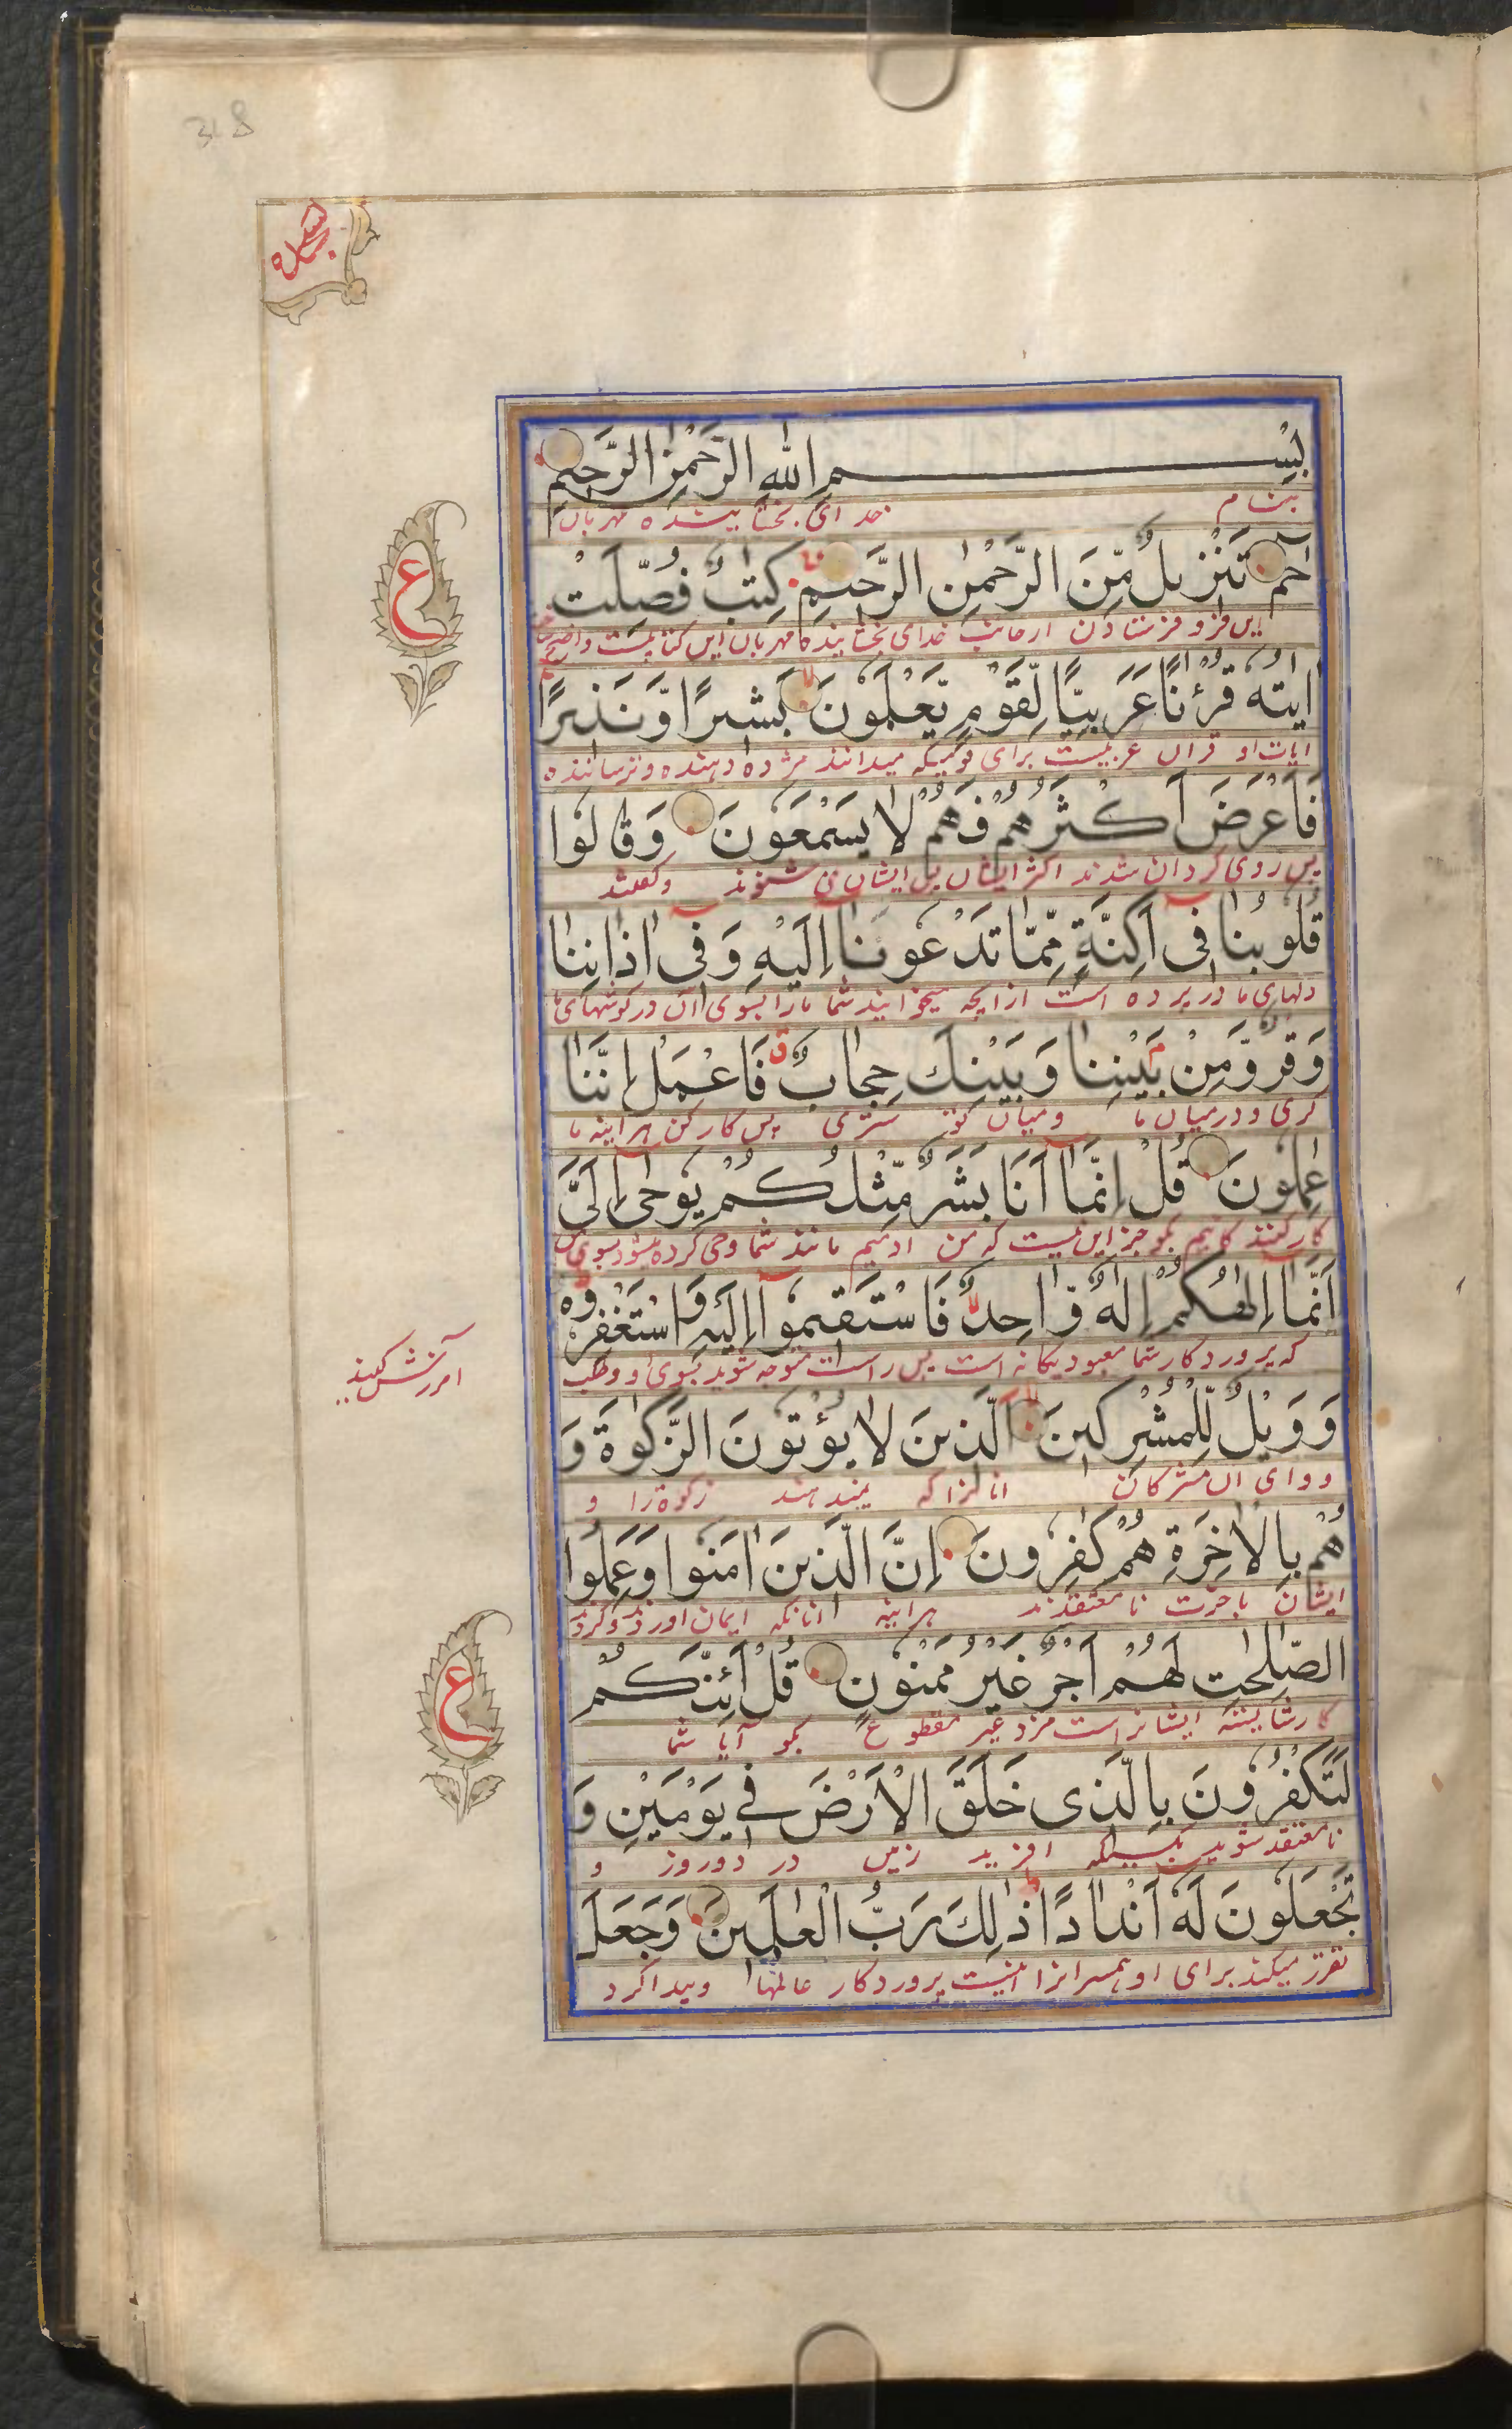 318
سجده
بِسْمِ اللهِ الرَّحْمٰنِ الرَّحِيْمِ
بنام خدای بخشاینده مهربان
حٰمٓ تَنْزِيْلٌ مِّنَ الرَّحْمٰنِ الرَّحِيْمِ كِتٰبٌ فُصِّلَتْ
فرستادن از جانب خدای بخشاینده مهربان این کتابیست واضح
اٰيٰتُهٗ قُرْاٰنًا عَرَبِيًّا لِّقَوْمٍ يَّعْلَمُوْنَ بَشِيْرًا وَّنَذِيْرًا
ع
ایات او قران عربیست برای قومیکه میدانند مژده دهنده و ترساننده
فَاَعْرَضَ اَكْثَرُهُمْ فَهُمْ لَا يَسْمَعُوْنَ وَقَالُوْا
پس روی کردان شدند اکثر ایشان پس ایشان نمی شنوند و کفتند
قُلُوْبُنَا فِىْۤ اَكِنَّةٍ مِّمَّا تَدْعُوْنَاۤ اِلَيْهِ وَفِىْۤ اٰذَانِنَا
دلهای ما در پرده است از انچه میخوانید شما مارا بسوی ان و در کوشهای ما
وَقْرٌ وَّمِنْۢ بَيْنِنَا وَبَيْنِكَ حِجَابٌ فَاعْمَلْ اِنَّنَا
کری و درمیان ما و میان تو ستری پس کار کن هراینه ما
عٰمِلُوْنَ قُلْ اِنَّمَاۤ اَنَا بَشَرٌ مِّثْلُكُمْ يُوْحٰۤى اِلَىَّ
کار کنندکانیم بکو جز این نیست که من ادمیم مانند شما وحی کرده میشود بسوی من
اَنَّمَاۤ اِلٰهُكُمْ اِلٰهٌ وَّاحِدٌ فَاسْتَقِيْمُوْۤا اِلَيْهِ وَاسْتَغْفِرُوْهُ
که پروردکار شما معبود یکانه است پس راست متوجه شوید بسوی او و طلب
امرزش کنید
وَوَيْلٌ لِّلْمُشْرِكِيْنَ الَّذِيْنَ لَا يُؤْتُوْنَ الزَّكٰوةَ وَ
و وای ان مشرکان انانرا که نمیدهند زکوة را و
هُمْ بِالْاٰخِرَةِ هُمْ كٰفِرُوْنَ اِنَّ الَّذِيْنَ اٰمَنُوْا وَعَمِلُوا
ایشان باخرت نامعتقدند هراینه انانکه ایمان اوردند و کردند
الصّٰلِحٰتِ لَهُمْ اَجْرٌ غَيْرُ مَمْنُوْنٍ قُلْ اَئِنَّكُمْ
ع
کار شایسته ایشانراست مزد غیر مقطوع بکو آیا شما
لَتَكْفُرُوْنَ بِالَّذِىْ خَلَقَ الْاَرْضَ فِىْ يَوْمَيْنِ وَ
نامعتقد شوید بکسیکه افرید زمین در دو روز و
تَجْعَلُوْنَ لَهٗۤ اَنْدَادًا ذٰلِكَ رَبُّ الْعٰلَمِيْنَ وَجَعَلَ
مقرر میکنید برای او همسرانرا اینست پروردکار عالمها و پیدا کرد